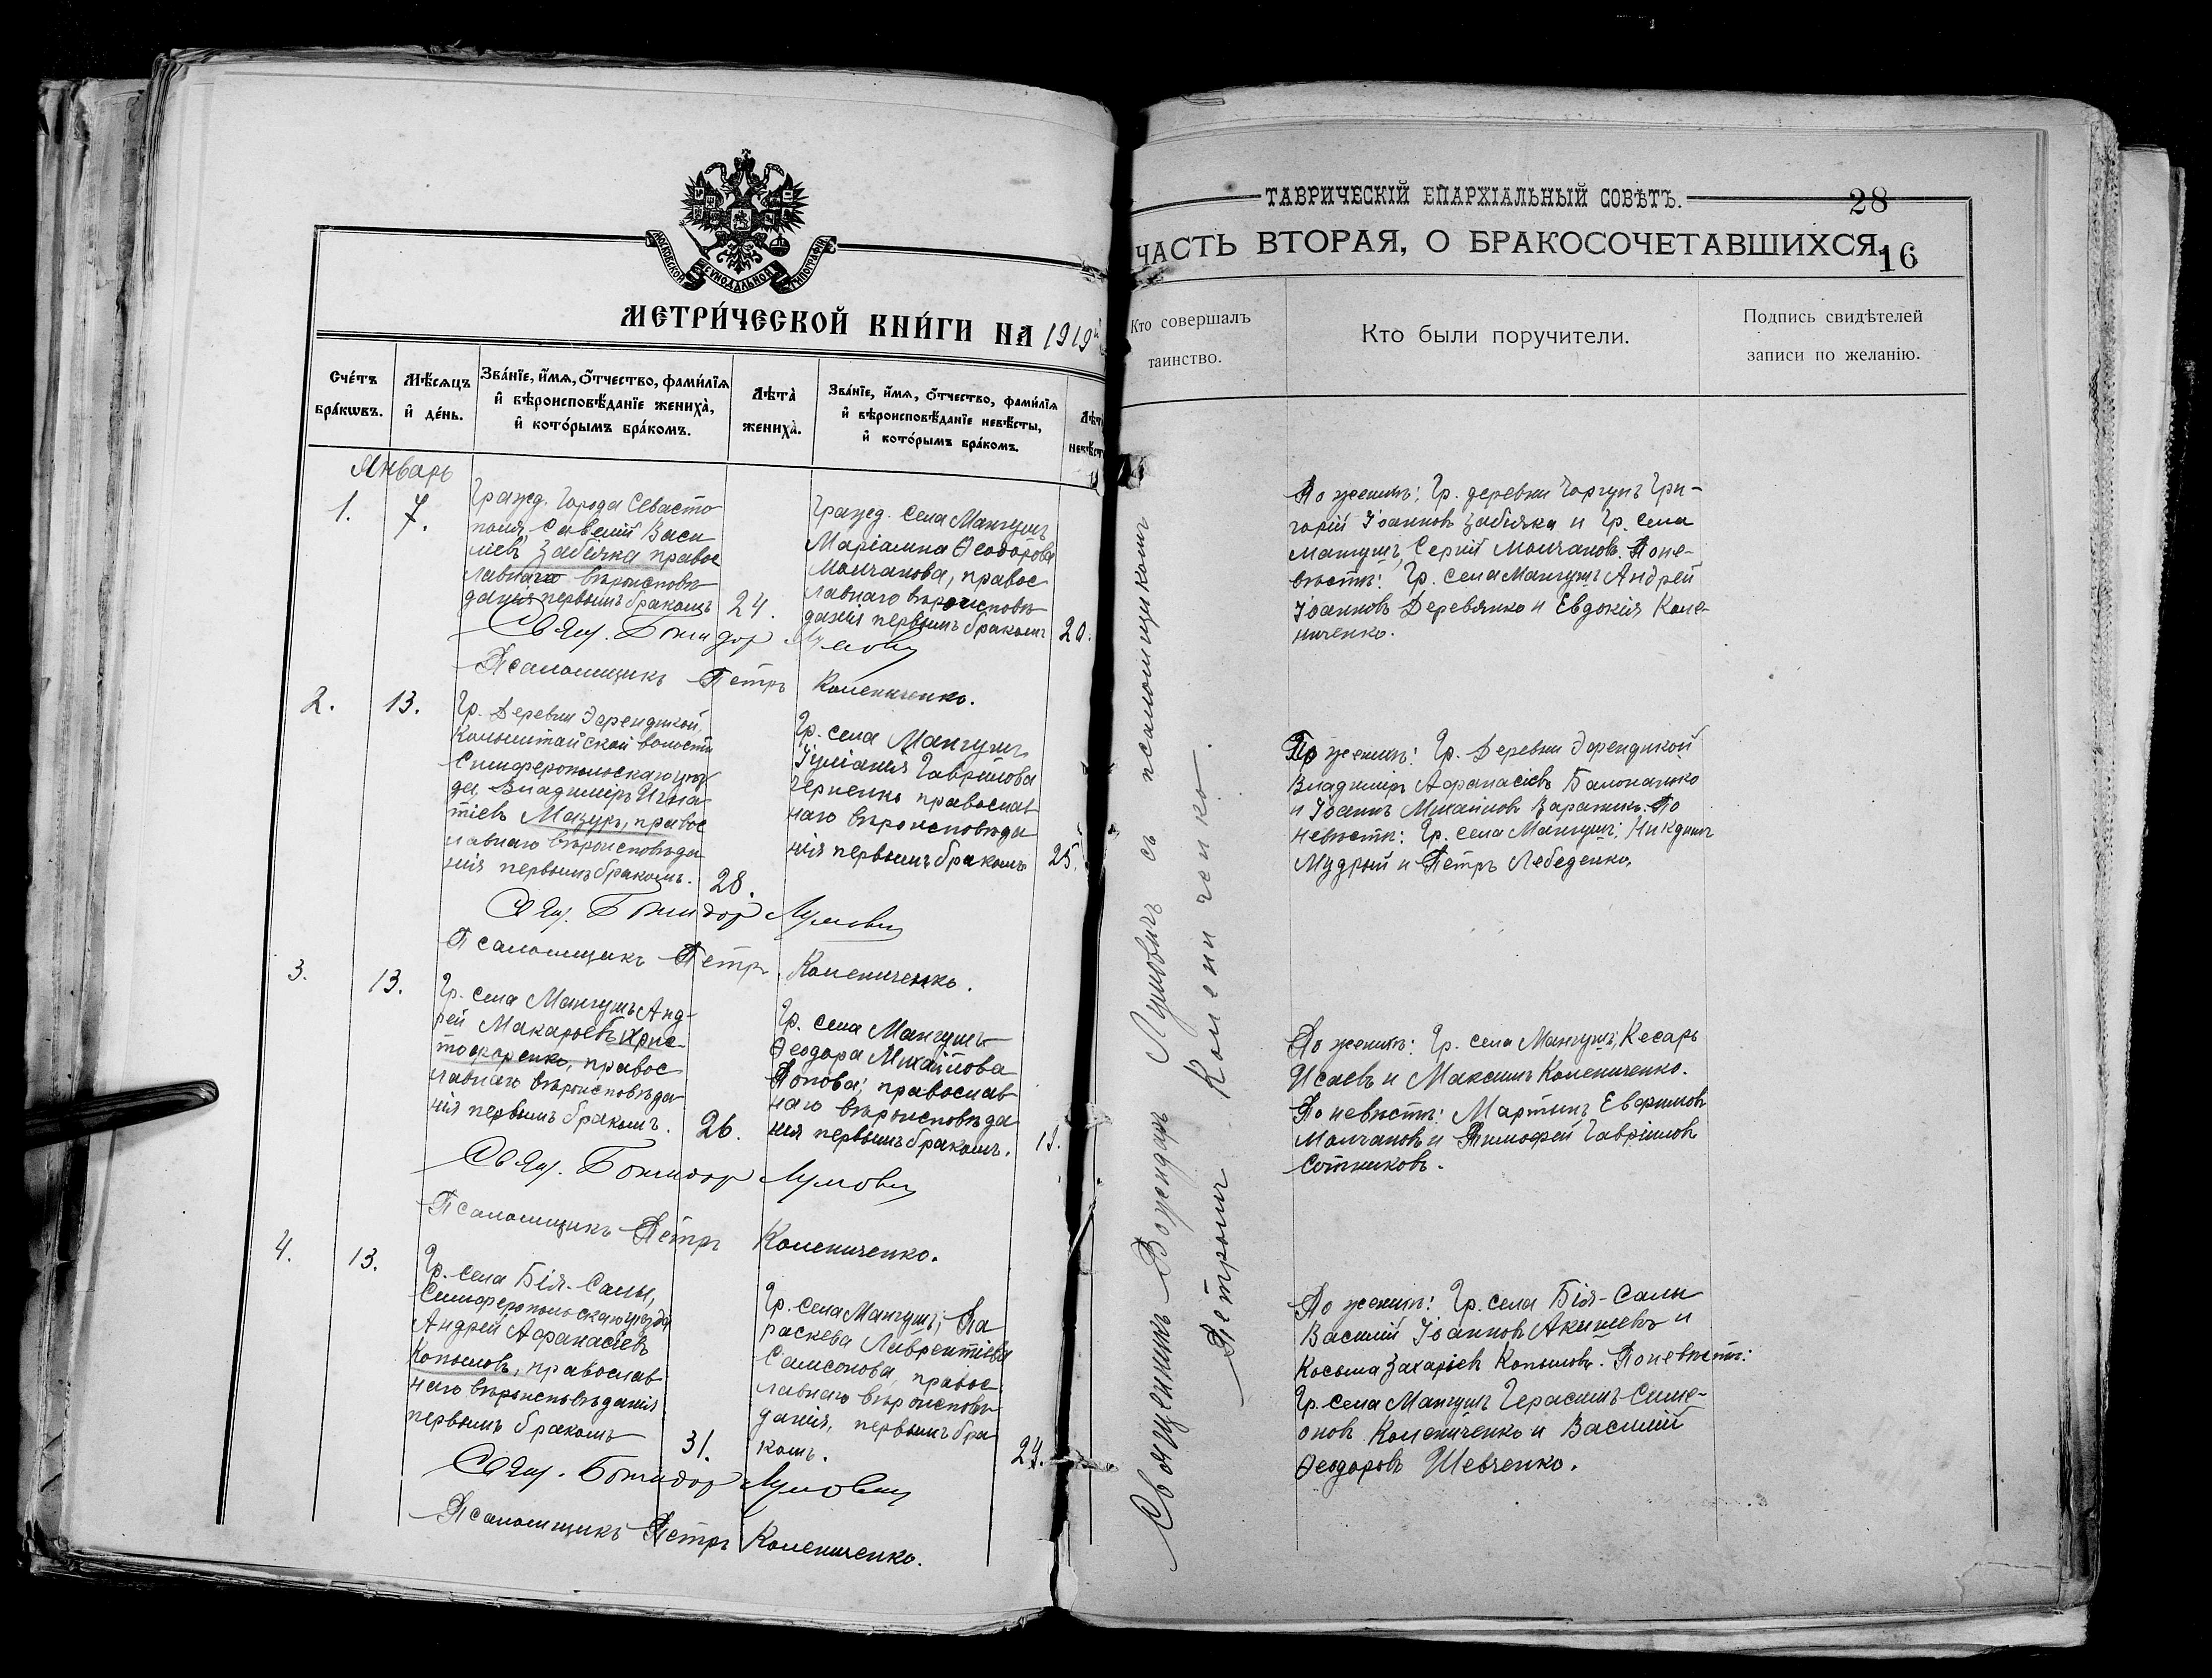 МОСКОВСКОЙ СѴНОДАЛЬНОЙ ТИПОГРАФІИ
МЕТРИ́ЧЕСКОЙ КНИ́ГИ НА 1919й
Сче́тъ
бра́кѡвъ.
Мѣ́сяцъ
и҆ де́нь.
Зва́нїе, и҆́мѧ, ѻ҆́тчество, фами́лїѧ
и҆ вѣроисповѣ́данїе жениха̀,
и҆ кото́рымъ бра́комъ.
Лѣта̀
жениха̀.
Зва́нїе, и҆́мѧ, ѻ҆́тчество, фами́лїѧ
и҆ вѣроисповѣ́данїе невѣ́сты,
и҆ кото́рымъ бра́комъ.
Январь
1.
7.
Гражд. Города Севасто
поля, Савелий Васи
лiевъ Забіяка правос
лавнаго вѣроисповѣ
данія первымъ бракомъ
24.
Гражд. Села Мангушъ
Маріамна Ѳеодорова
Молчанова, правос
лавнаго вѣроисповѣ
данія первымъ бракомъ
20.
Свящ. Божидар Лумович
Псаломщикъ Петръ Колениченко.
2.
13.
Гр. Деревни Эфендикой
Симферопольскаго уѣз
да, Владимиръ Игна
тіевъ Мазуръ, правос
лавнаго вѣроисповѣда
нія первымъ бракомъ.
28.
Гр. села Мангушъ
Іуліанія Гавріилова
Черненко православ
наго вѣроисповѣда
нія первымъ бракомъ
25.
Свящ. Божидар Лумович
Псаломщикъ Петръ Колениченко.
3.
13.
Гр. села Мангушъ Анд-
рей Макаровъ Хрис-
тофоренко, правос
лавнаго вѣроисповѣда
нія первымъ бракомъ.
26.
Гр. села Мангушъ
Ѳеодора Михайлова
Попова, православ
наго вѣроисповѣда
нія первымъ бракомъ.
Свящ. Божидар Лумович
Псаломщикъ Петръ Колениченко.
4.
13.
Гр. села Бія-Салы,
Симферопольскаго уѣзда
Андрей Афанасіевъ
Копыловъ, православ
наго вѣроисповѣданія
первымъ бракомъ
31.
Гр. села Мангушъ, Па
раскева Лаврентіева
Самсонова, правос
лавнаго вѣроисповѣ
данія, первымъ бра
комъ.
24.
Свящ. Божидар Лумович
Псаломщикъ Петръ Колениченко.
ТАВРИЧЕСКІЙ ЕПАРХІАЛЬНЫЙ СОВѢТЪ.
28
ЧАСТЬ ВТОРАЯ, О БРАКОСОЧЕТАВШИХСЯ
16
Кто совершалъ
таинство.
Кто были поручители.
Подпись свидѣтелей
записи по желанію.
Священникъ Божидаръ Лумовичъ съ псаломщикомъ
Петромъ Колениченко.
По женихѣ: Гр. деревни Чоргунъ Гри-
горій Іоанновъ Забіяка и Гр. села
Мангушъ, Сергій Молчановъ. По не-
вѣстѣ: Гр. села Мангушъ Андрей
Іоанновъ Деревянко и Евдокія Коле-
ниченко.
По женихѣ: Гр. Деревни Эфендикой
Владиміръ Афанасіевъ
и Іоаннъ Михайловъ По
невѣстѣ: Гр. села Мангушъ:
Мудрый и Петръ Лебеденко.
По женихѣ: Гр. села Мангушъ, Кесарь
Исаевъ и Максимъ Колениченко.
По невѣстѣ: Мартынъ Евфимовъ
Молчановъ и Тимофей Гавріиловъ
Сотниковъ.
По женихѣ: Гр. села Бія-Салы
Василий Іоанновъ Акишевъ и
Косьма Захаріевъ Копыловъ. По невѣстѣ:
Гр. села Мангушъ Герасимъ Симе-
оновъ Колениченко и Василий
Ѳеодоровъ Шевченко.